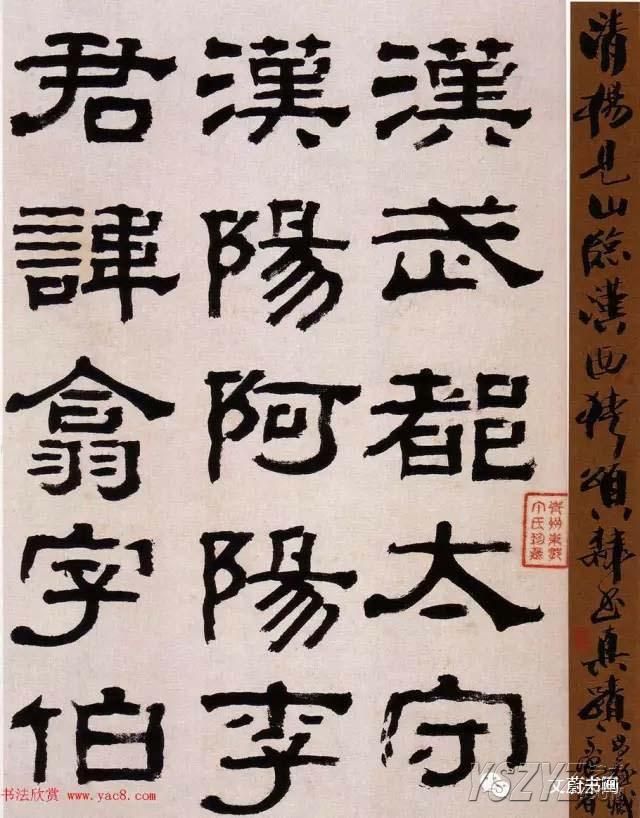 清楊見山臨漢西狹頌隸書真蹟
漢武都太守
漢陽阿陽李
君諱翕字伯
书法欣赏 www.yac8.com
文蔚书画